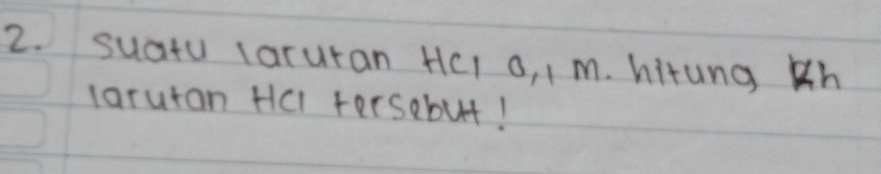 2. suatu larutan HCl 0,1 M. hitung Kh
larutan HCl tersebut!